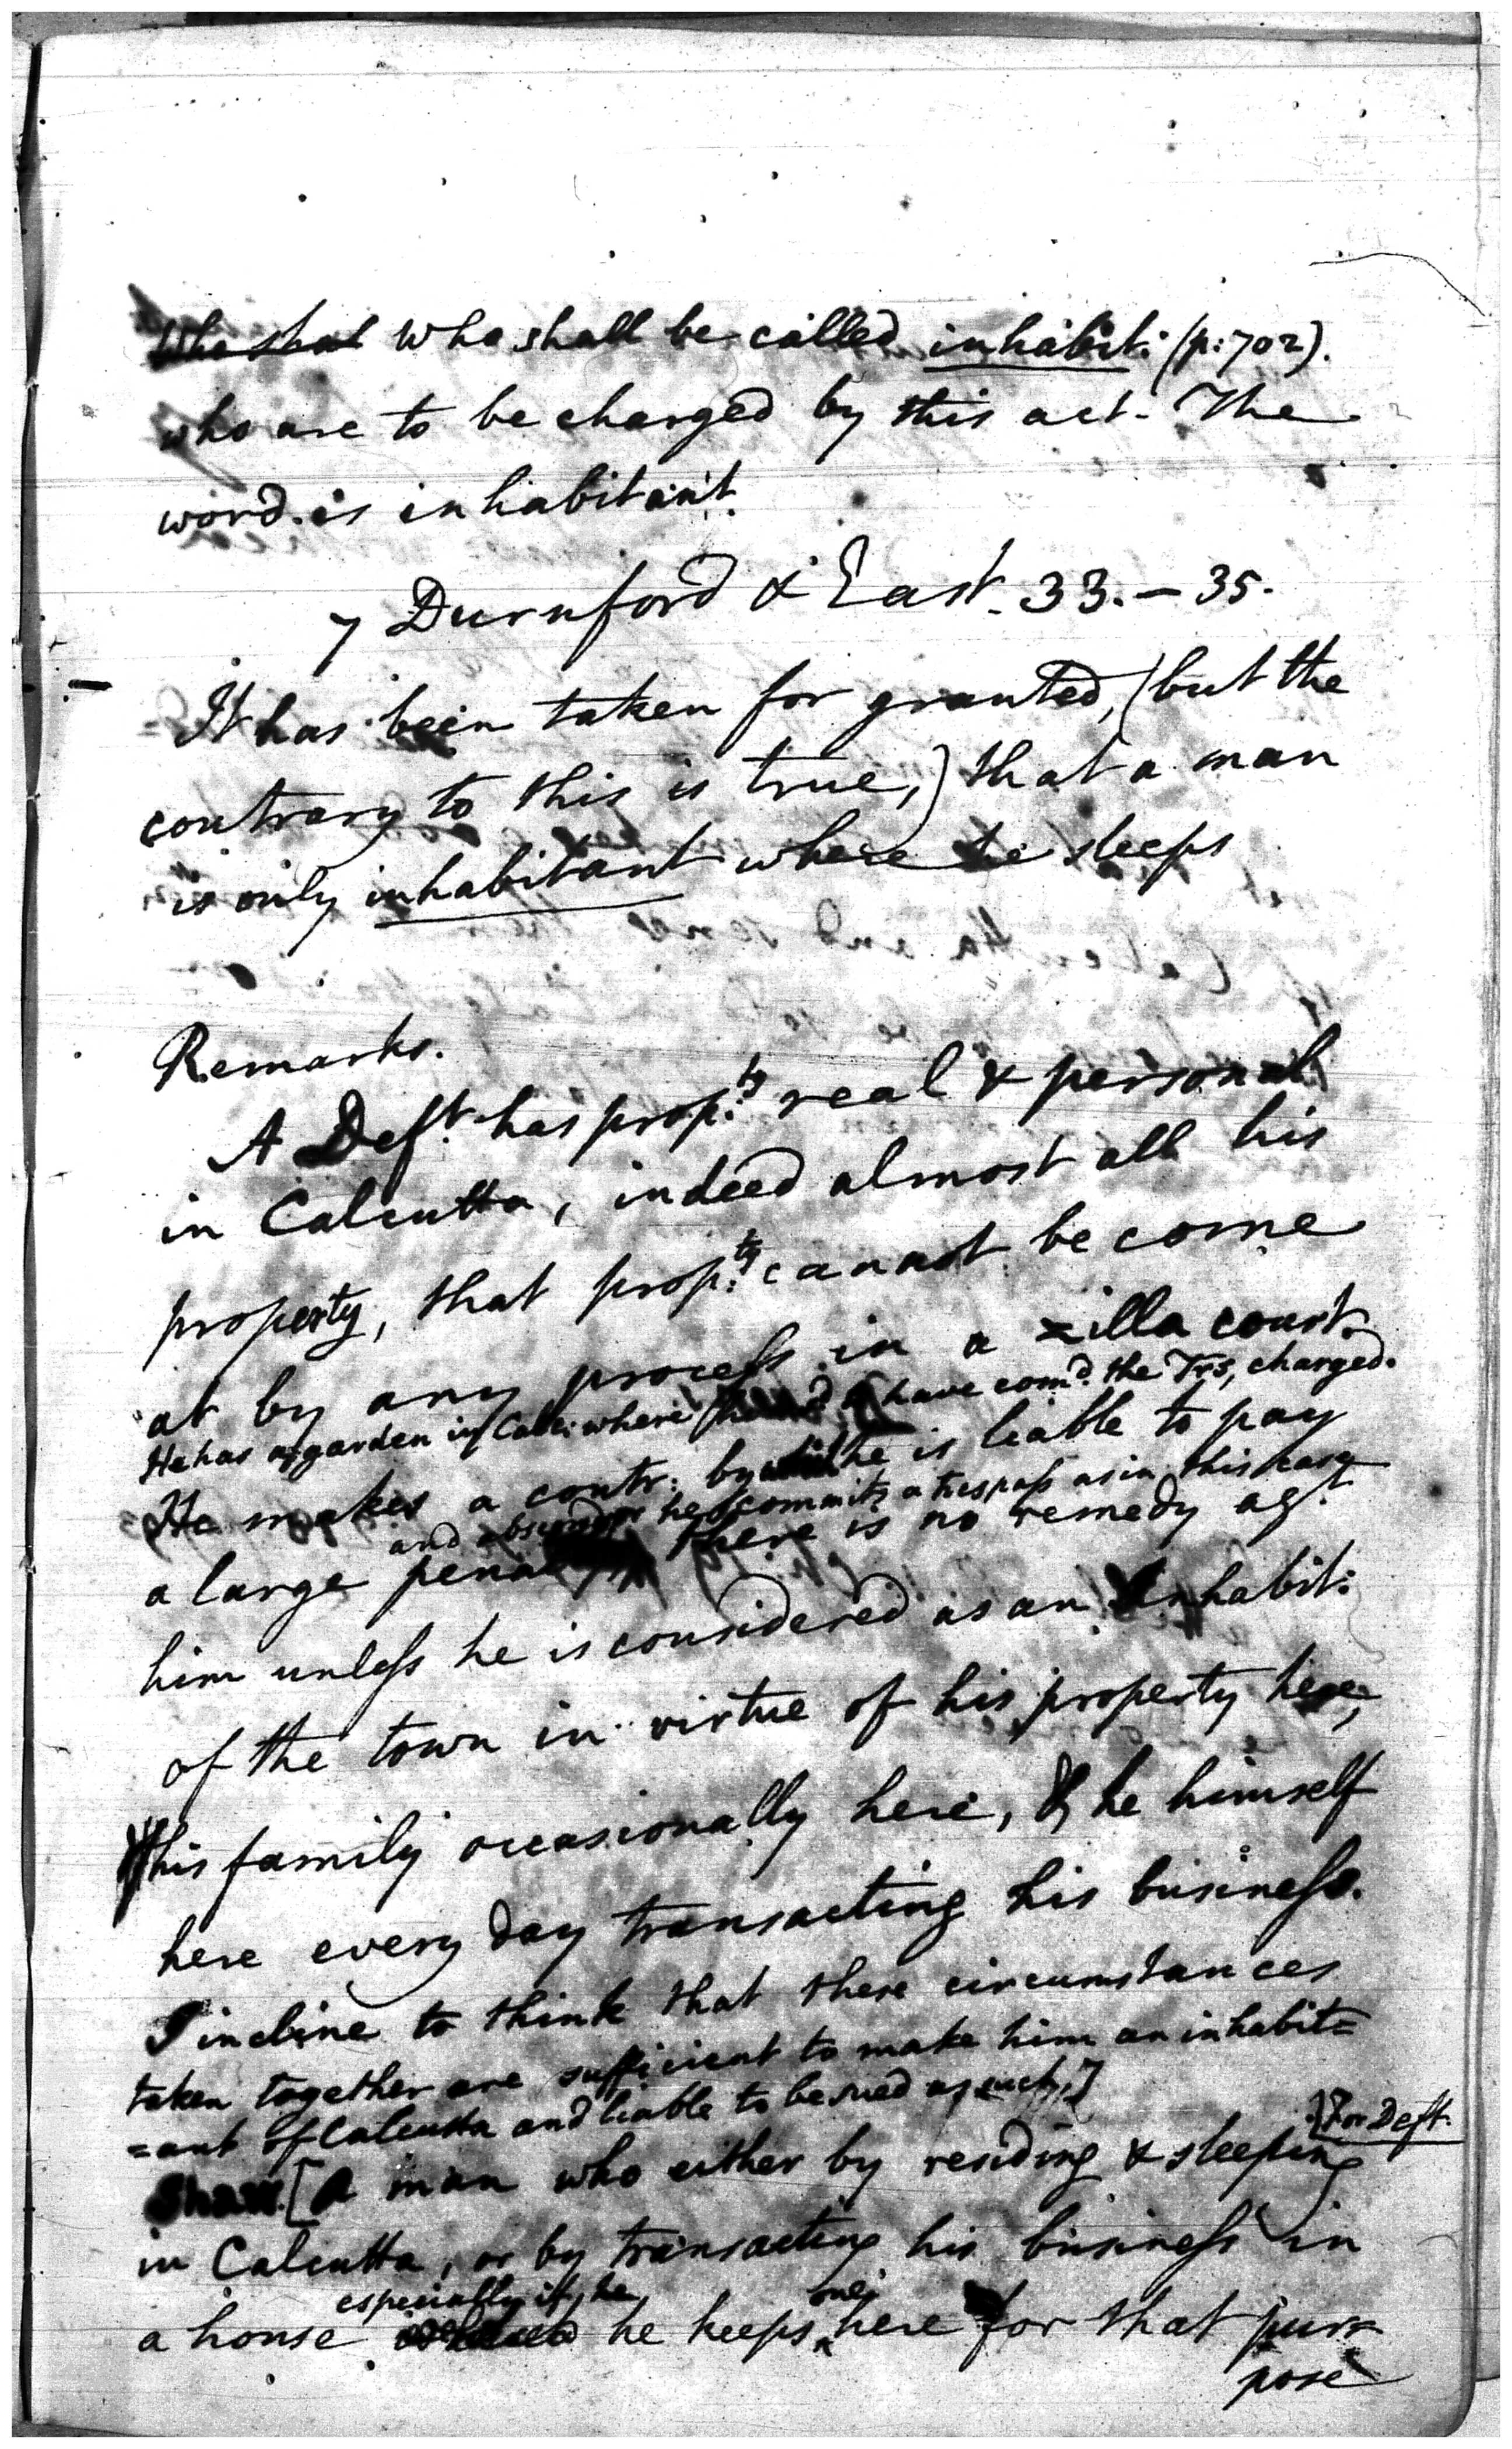 Who shal who shall be called inhabit: (p: 702).
who are to be charged by this act. The
word is inhabitant.
7 Durnford & East. 33. – 35.
It has been taken for granted, (but the
contrary to this is true,) that a man
is only inhabitant where he sleeps
Remarks.
A Deft. has prop:ty real & personal
in Calcutta, indeed almost all his
property, that prop:ty cannot be come
at by any process in a zilla court.
He has a garden in Calc: where have comd. the Trs, charged.
He makes a contr: by he is liable to pay
and or he commits a trespass as in this case
a large there is no remedy agt.
him unless he is considered as an Inhabit:
of the town in virtue of his property here,
his family occasionally here, & he himself
here every day transacting his business.
I incline to think that these circumstances
taken together are sufficient to make him an inhabit=
=ant of Calcutta and liable to be sued as such.]
For Deft.
Shaw. [A man who either by residing & sleeping
in Calcutta, or by transacting his business in
especially if he one
a house he keeps here for that pur
pose